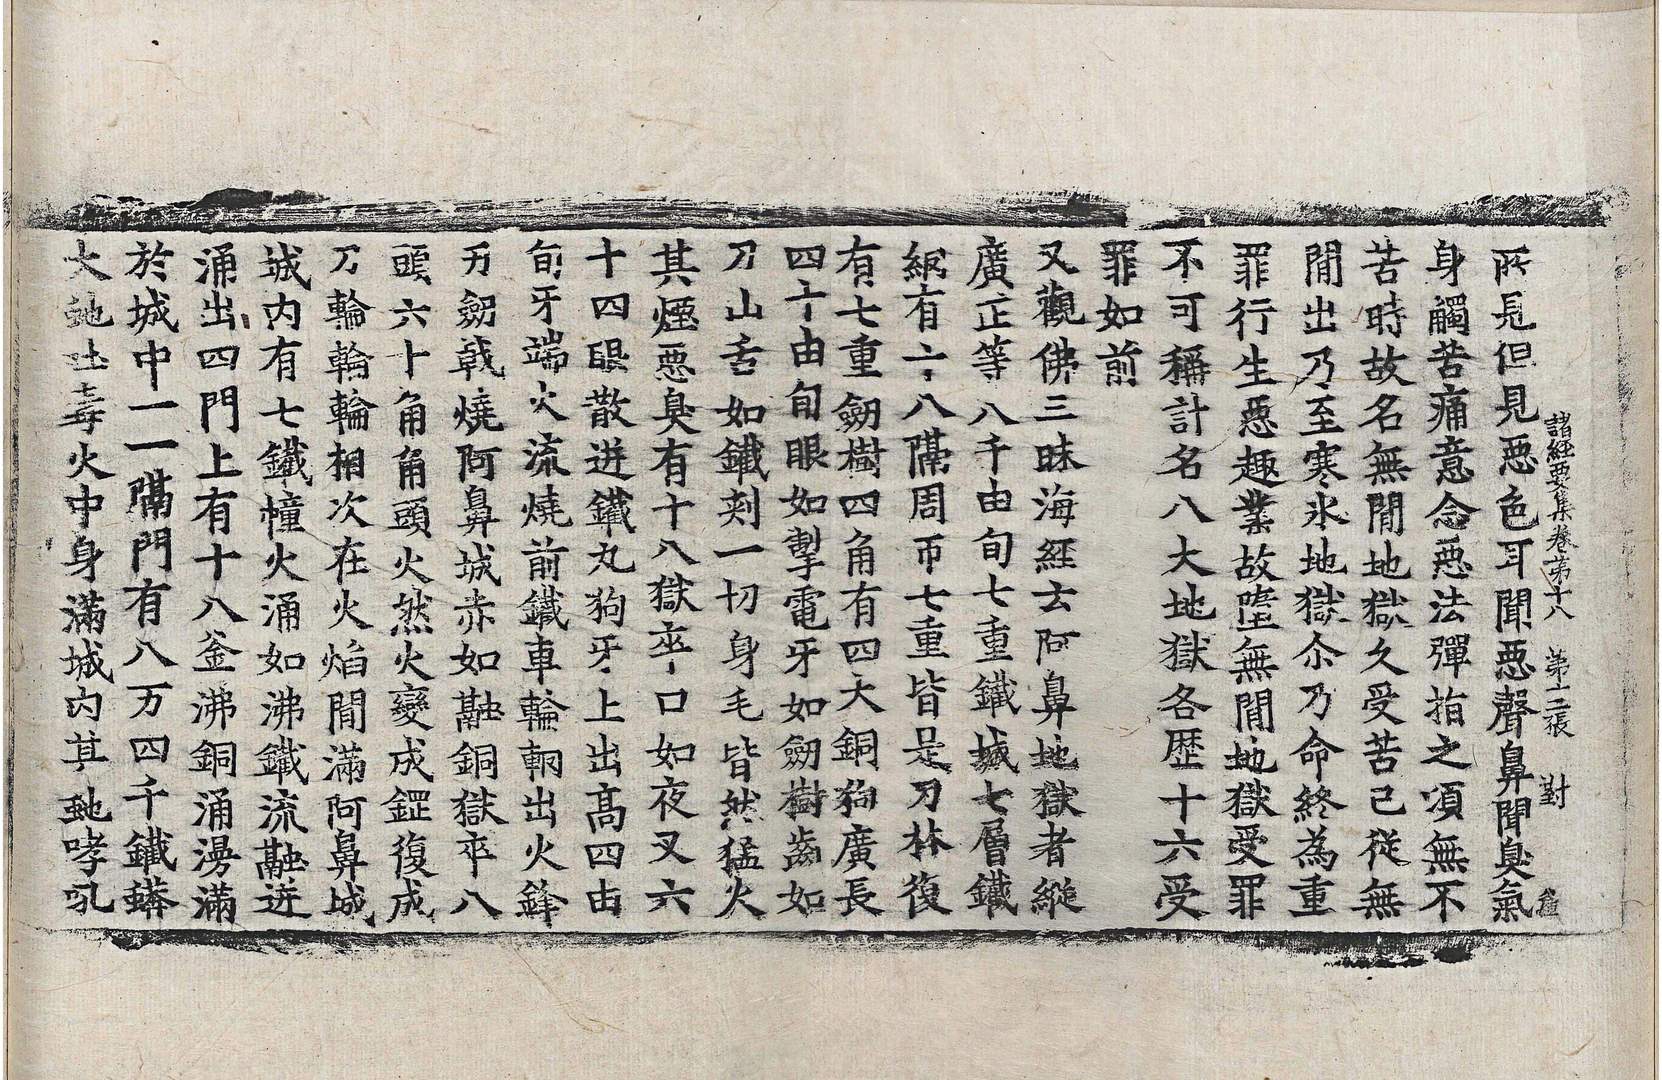 諸經要集卷第十八 第十二張 對
所見但見惡色耳聞惡聲鼻聞臭氣
身觸苦痛意念惡法彈指之頃無不
苦時故名無間地獄久受苦已從無
間出乃至寒氷地獄尒乃命終為重
罪行生惡趣業故墮無間地獄受罪
不可稱計名八大地獄各歴十六受
罪如前
又觀佛三昧海經云阿鼻地獄者縱
廣正等八千由旬七重鐵城七層鐵
網有十八隔周帀七重皆是刀林復
有七重劒樹四角有四大銅狗廣長
四十由旬眼如掣電牙如劒樹齒如
刀山舌如鐵刺一切身毛皆然猛火
其煙惡臭有十八獄卒口如夜叉六
十四眼散迸鐵丸狗牙上出高四由
旬牙端火流燒前鐵車輪輞出火鋒
刃劒戟燒阿鼻城赤如融銅獄卒八
頭六十角角頭火然火變成鋥復成
刀輪輪輪相次在火焰間滿阿鼻城
城内有七鐵幢火涌如沸鐵流融迸
涌出四門上有十八釜沸銅涌漫滿
於城中一一隔門有八万四千鐵蟒
大虵吐毒火中身滿城内其虵哮吼